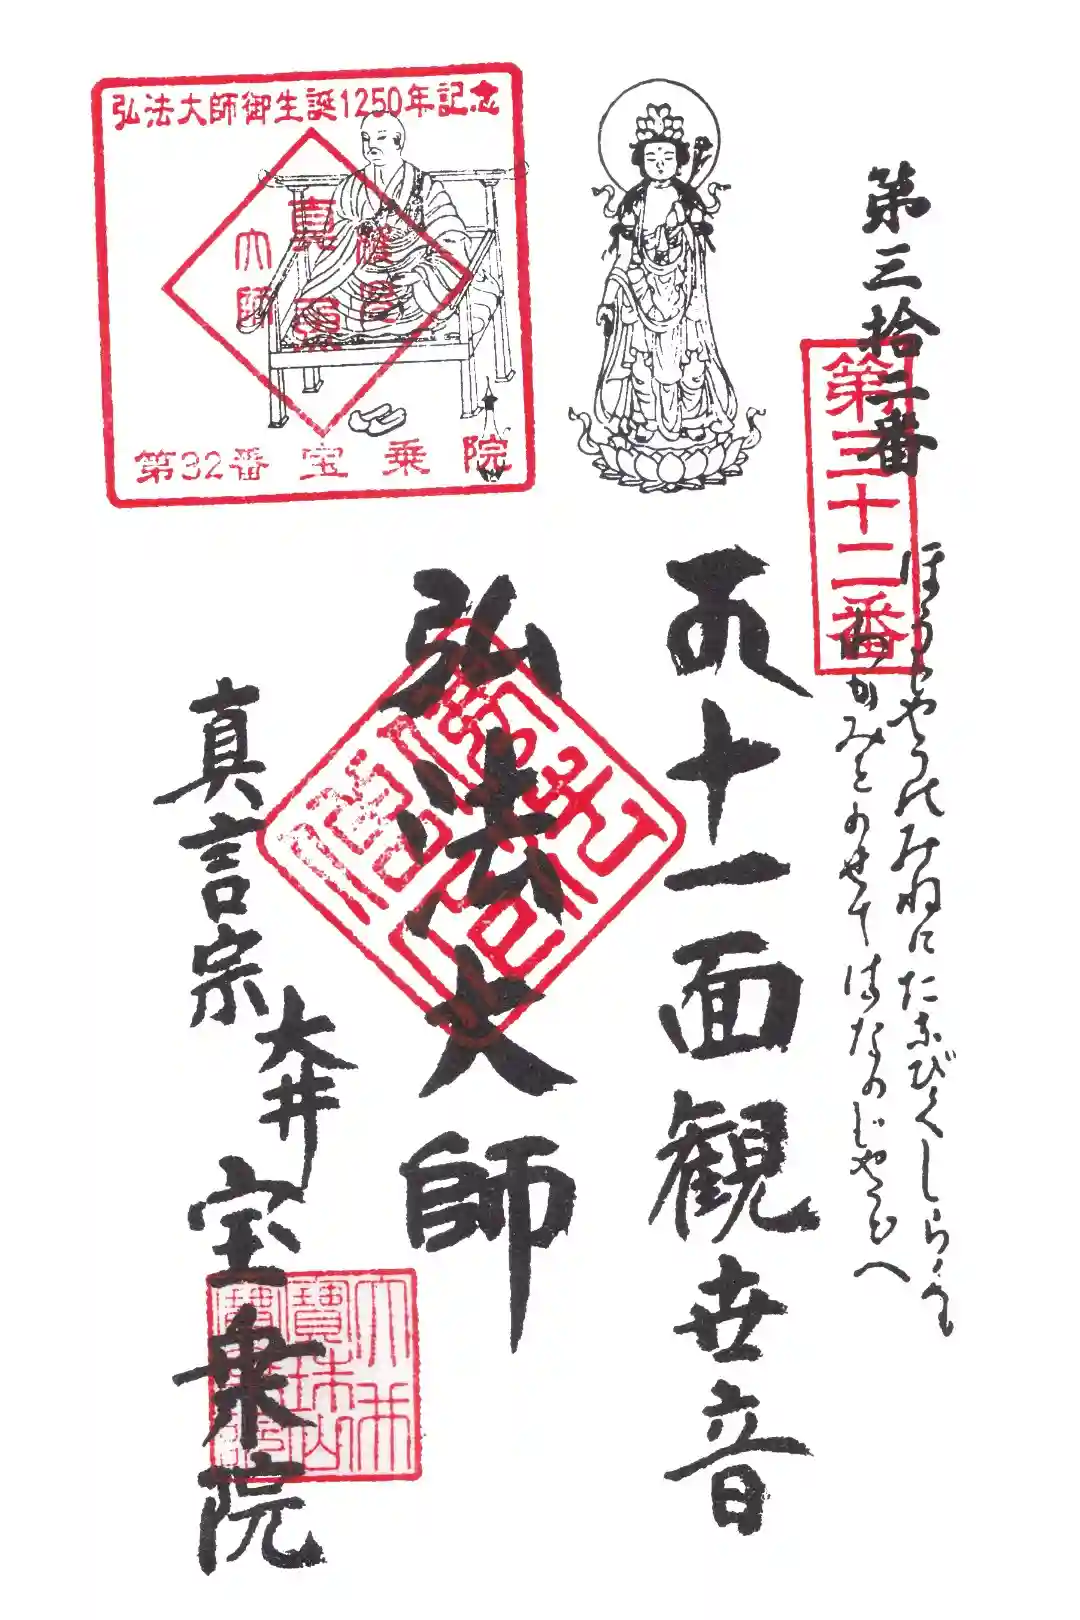 第三拾二番
第三十二番
ほうじやうのみねにたなびくしらくも
みとのせてはなのじやうへ
十一面観世音
弘法大師
真言宗
大井
宝乗院
弘法大師御生誕1250年記念
大師
第32番 宝乗院